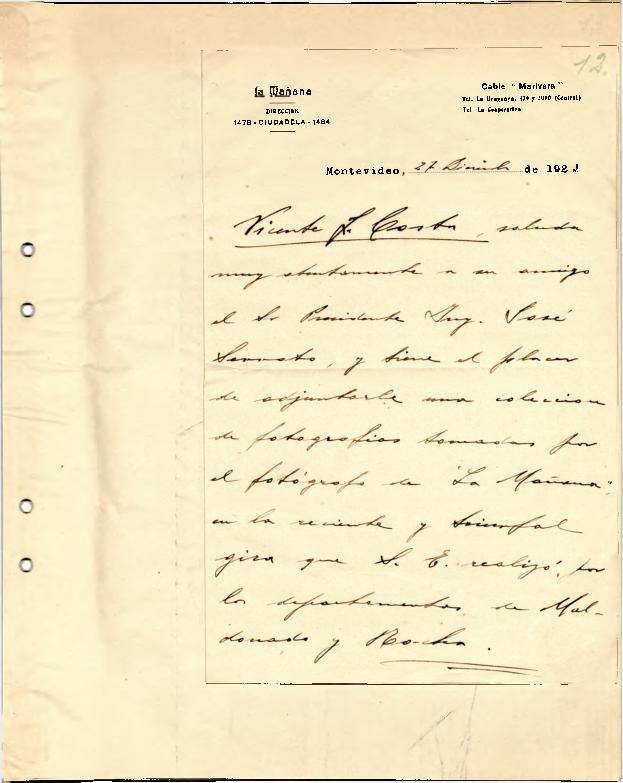 12.
La Mañana
DIRECCION
1478 - CIUDADELA - 1484
Cable "Marivera"
Tel. La Uruguaya, 179 y 2090 (Central)
Tel. La Cooperativa
Montevideo, 27 Diciembre de 192
Vicente F. Costa, saluda
muy atentamente a su amigo
el Sr Presidente Ing. José
Serrato, y tiene el placer
de adjuntarle una coleccion
de fotografias tomadas por
el fotógrafo de "La Mañana",
en la reciente y triunfal
gira que S. E. realizó, por
los departamentos de Mal-
donado y Rocha.